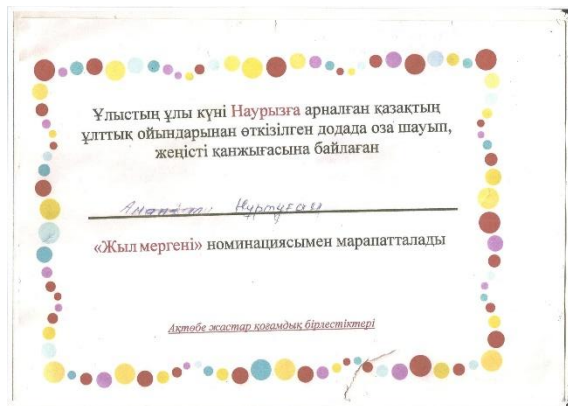 Ұлыстың ұлы күні Наурызға арналған қазақтың
ұлттық ойындарынан өткізілген додада оза шауып,
жеңісті қанжығасына байлаған
Нұртуған
«Жыл мергені» номинациясымен марапатталады
Ақтөбе жастар қоғамдық бірлестіктері